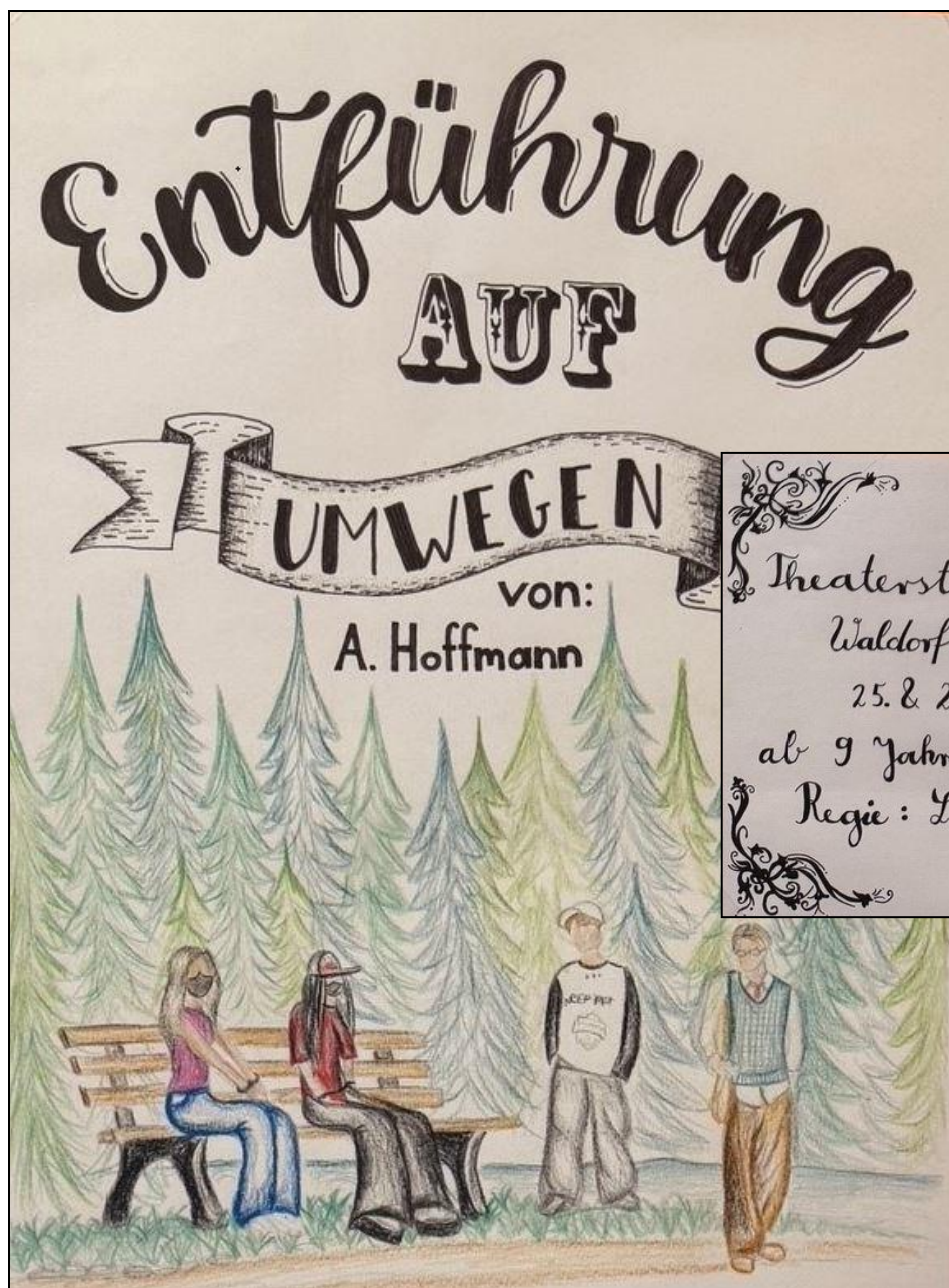 Entführung
AUF
UMWEGEN
von:
A. Hoffmann
Theaterst
Waldorf
25. &
ab 9 Jahr
Regie: